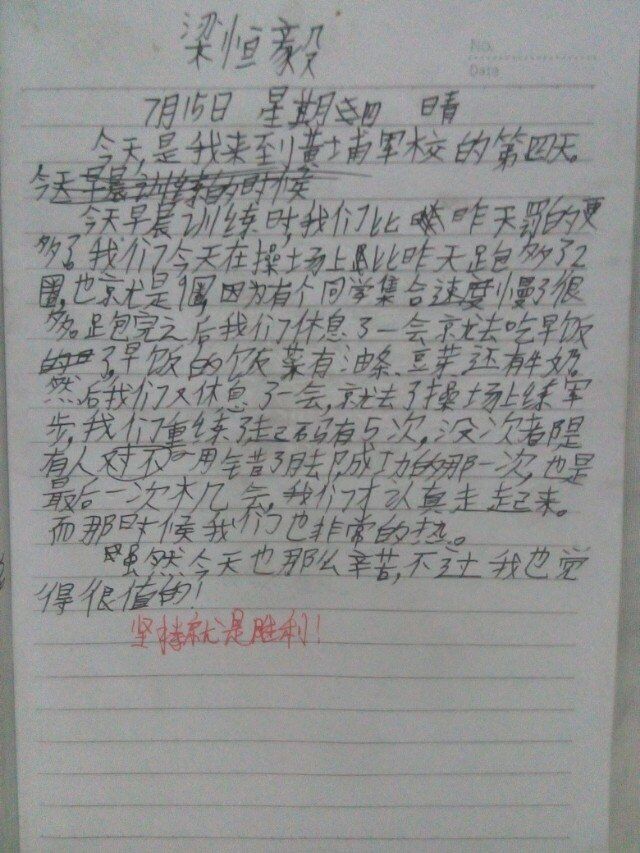 梁恒毅
No.
Date
7月15日 星期四 晴
今天,是我来到黄埔军校的第四天。
今天早晨训练的时候
今天早晨训练时,我们比昨天罚的更
多了。我们今天在操场上比昨天跑多了2
圈,也就是9圈,因为有个同学集合速度慢了很
多。跑完之后我们休息了一会就去吃早饭
了,早饭的饭菜有油条、豆芽还有牛奶。
然后我们又休息了一会,就去了操场上练军
步,我们重练了起码有5次,没次都是
有人用错了脚,成功的那一次,也是
最后一次机会,我们才认真走起来。
而那时候我们也非常的热。
虽然今天也那么辛苦,不过我也觉
得很值的!
坚持就是胜利!